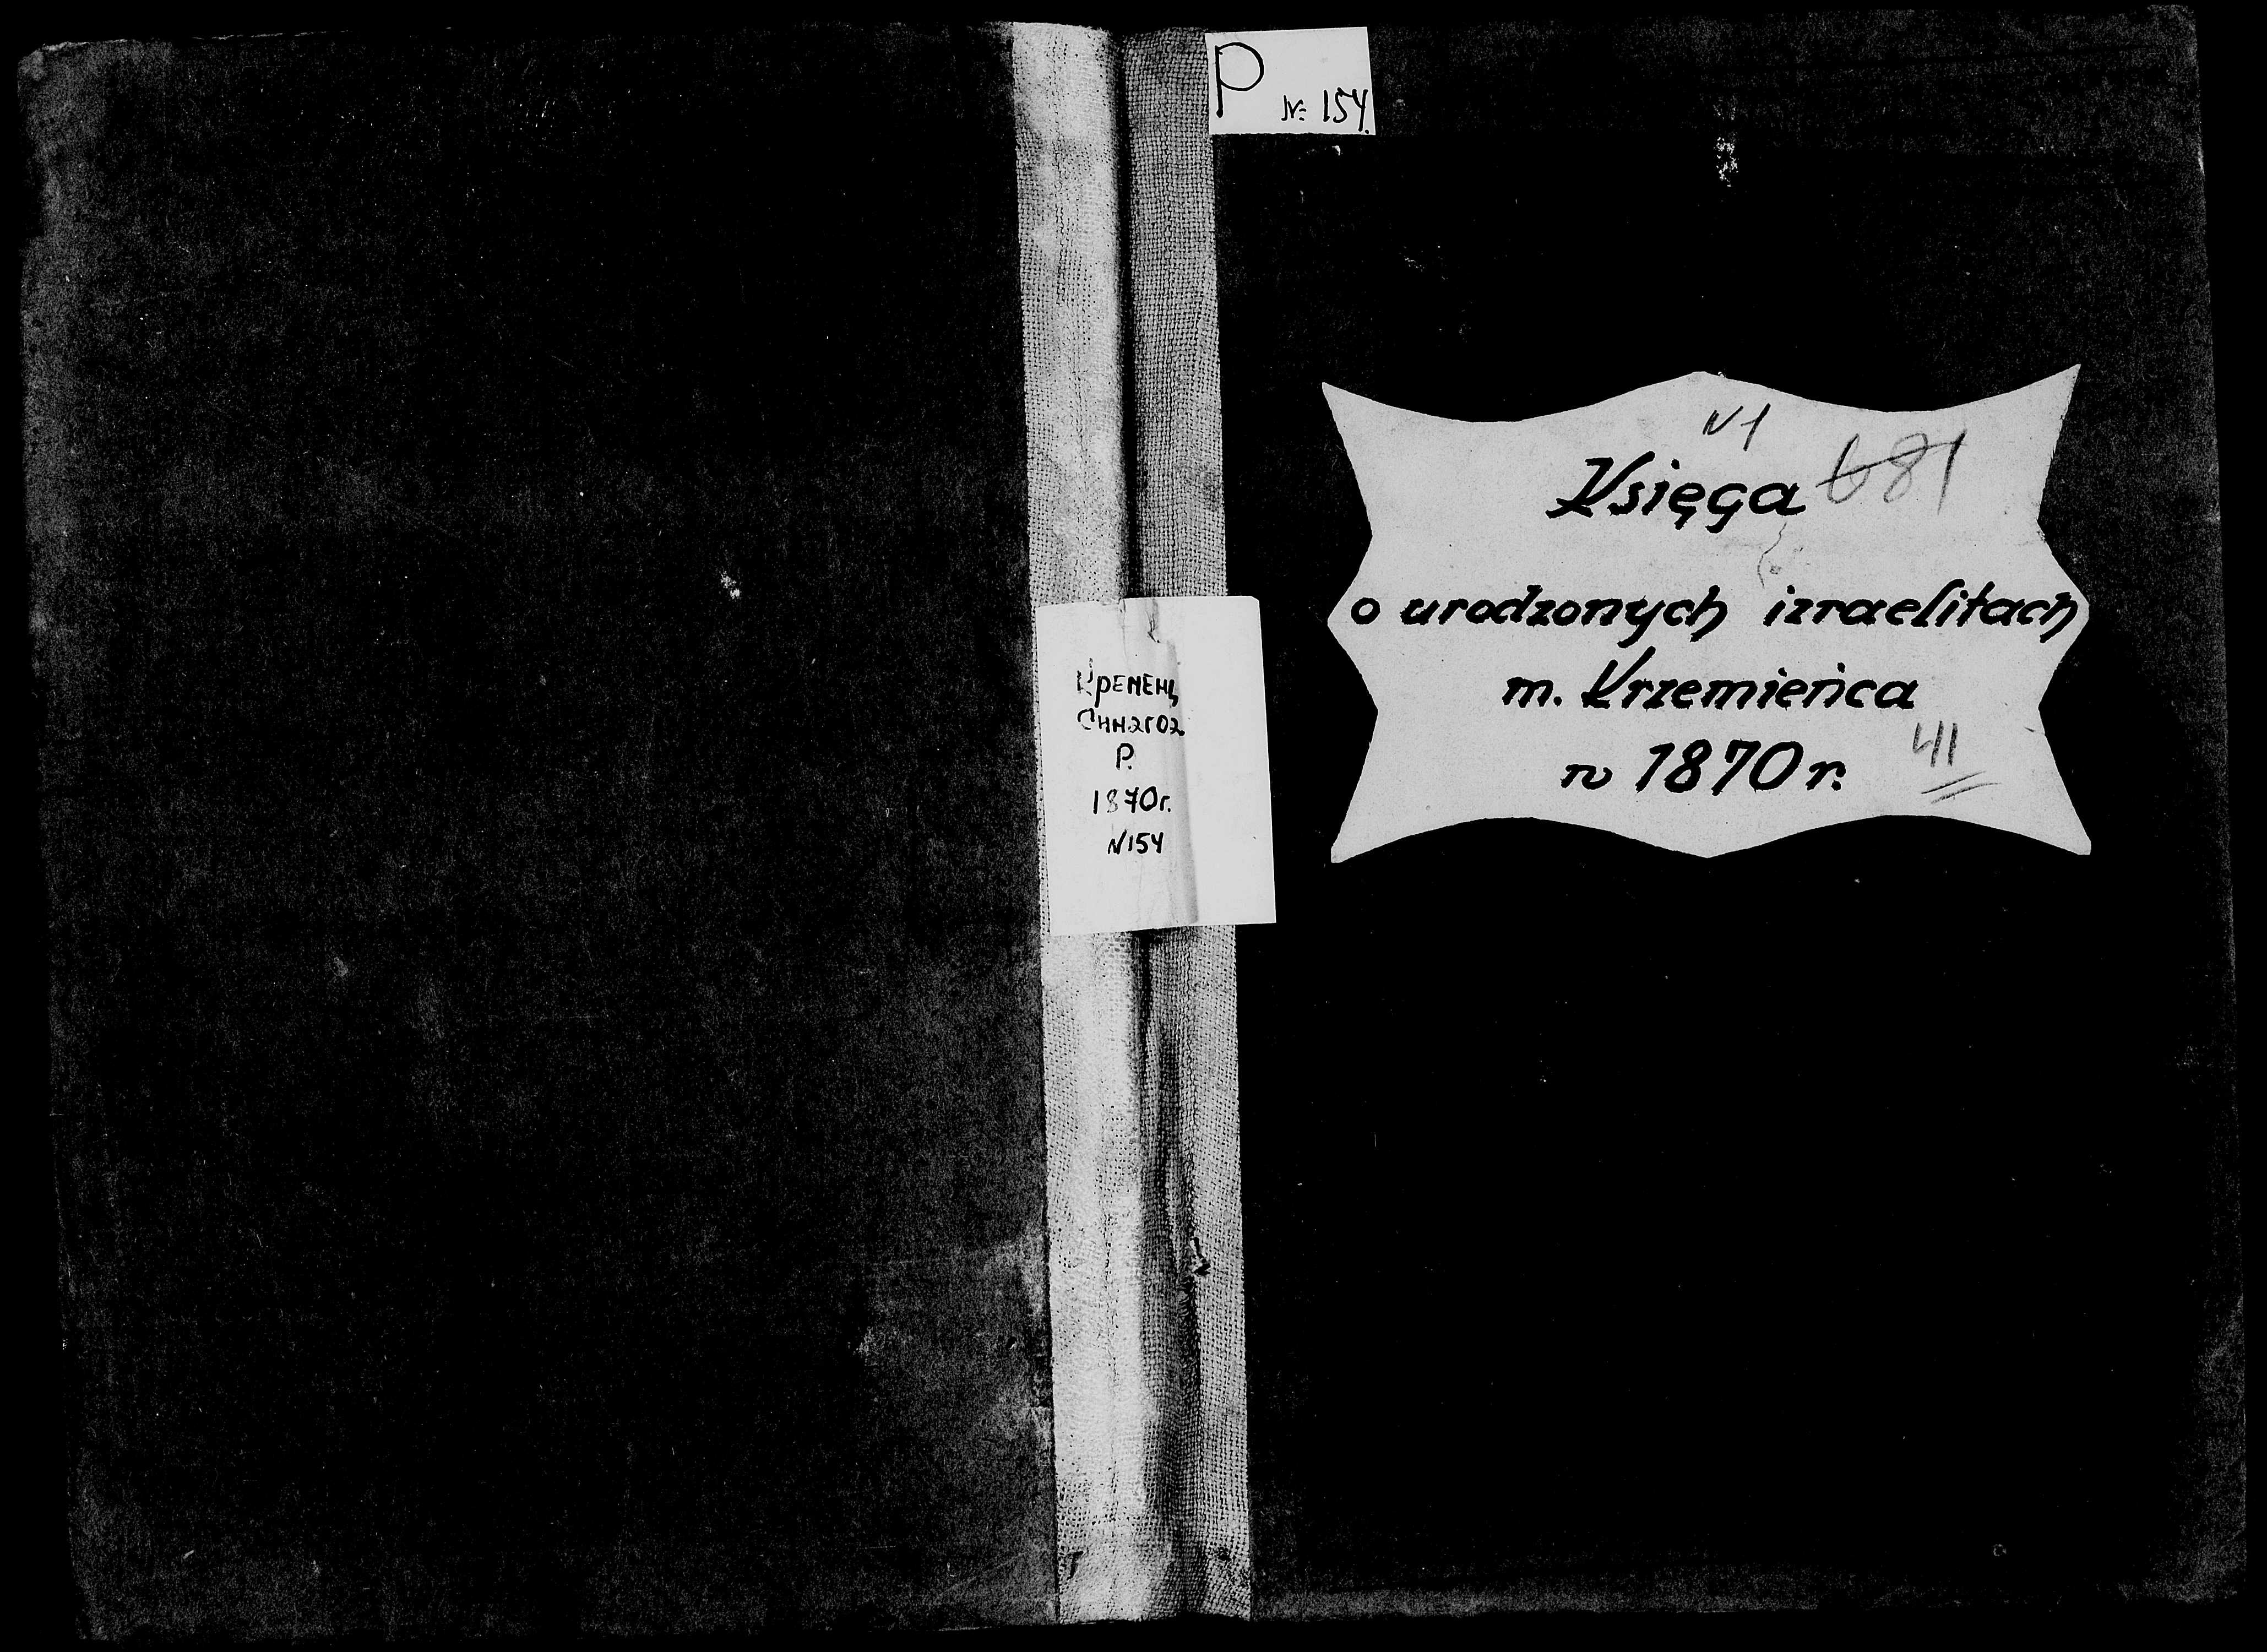 P
№ 154.
Кременц
Синагога
Р.
1870г.
N154
N1
Księga 681
o urodzonych izraelitach
m. Krzemieńca
w 1870 r.
411